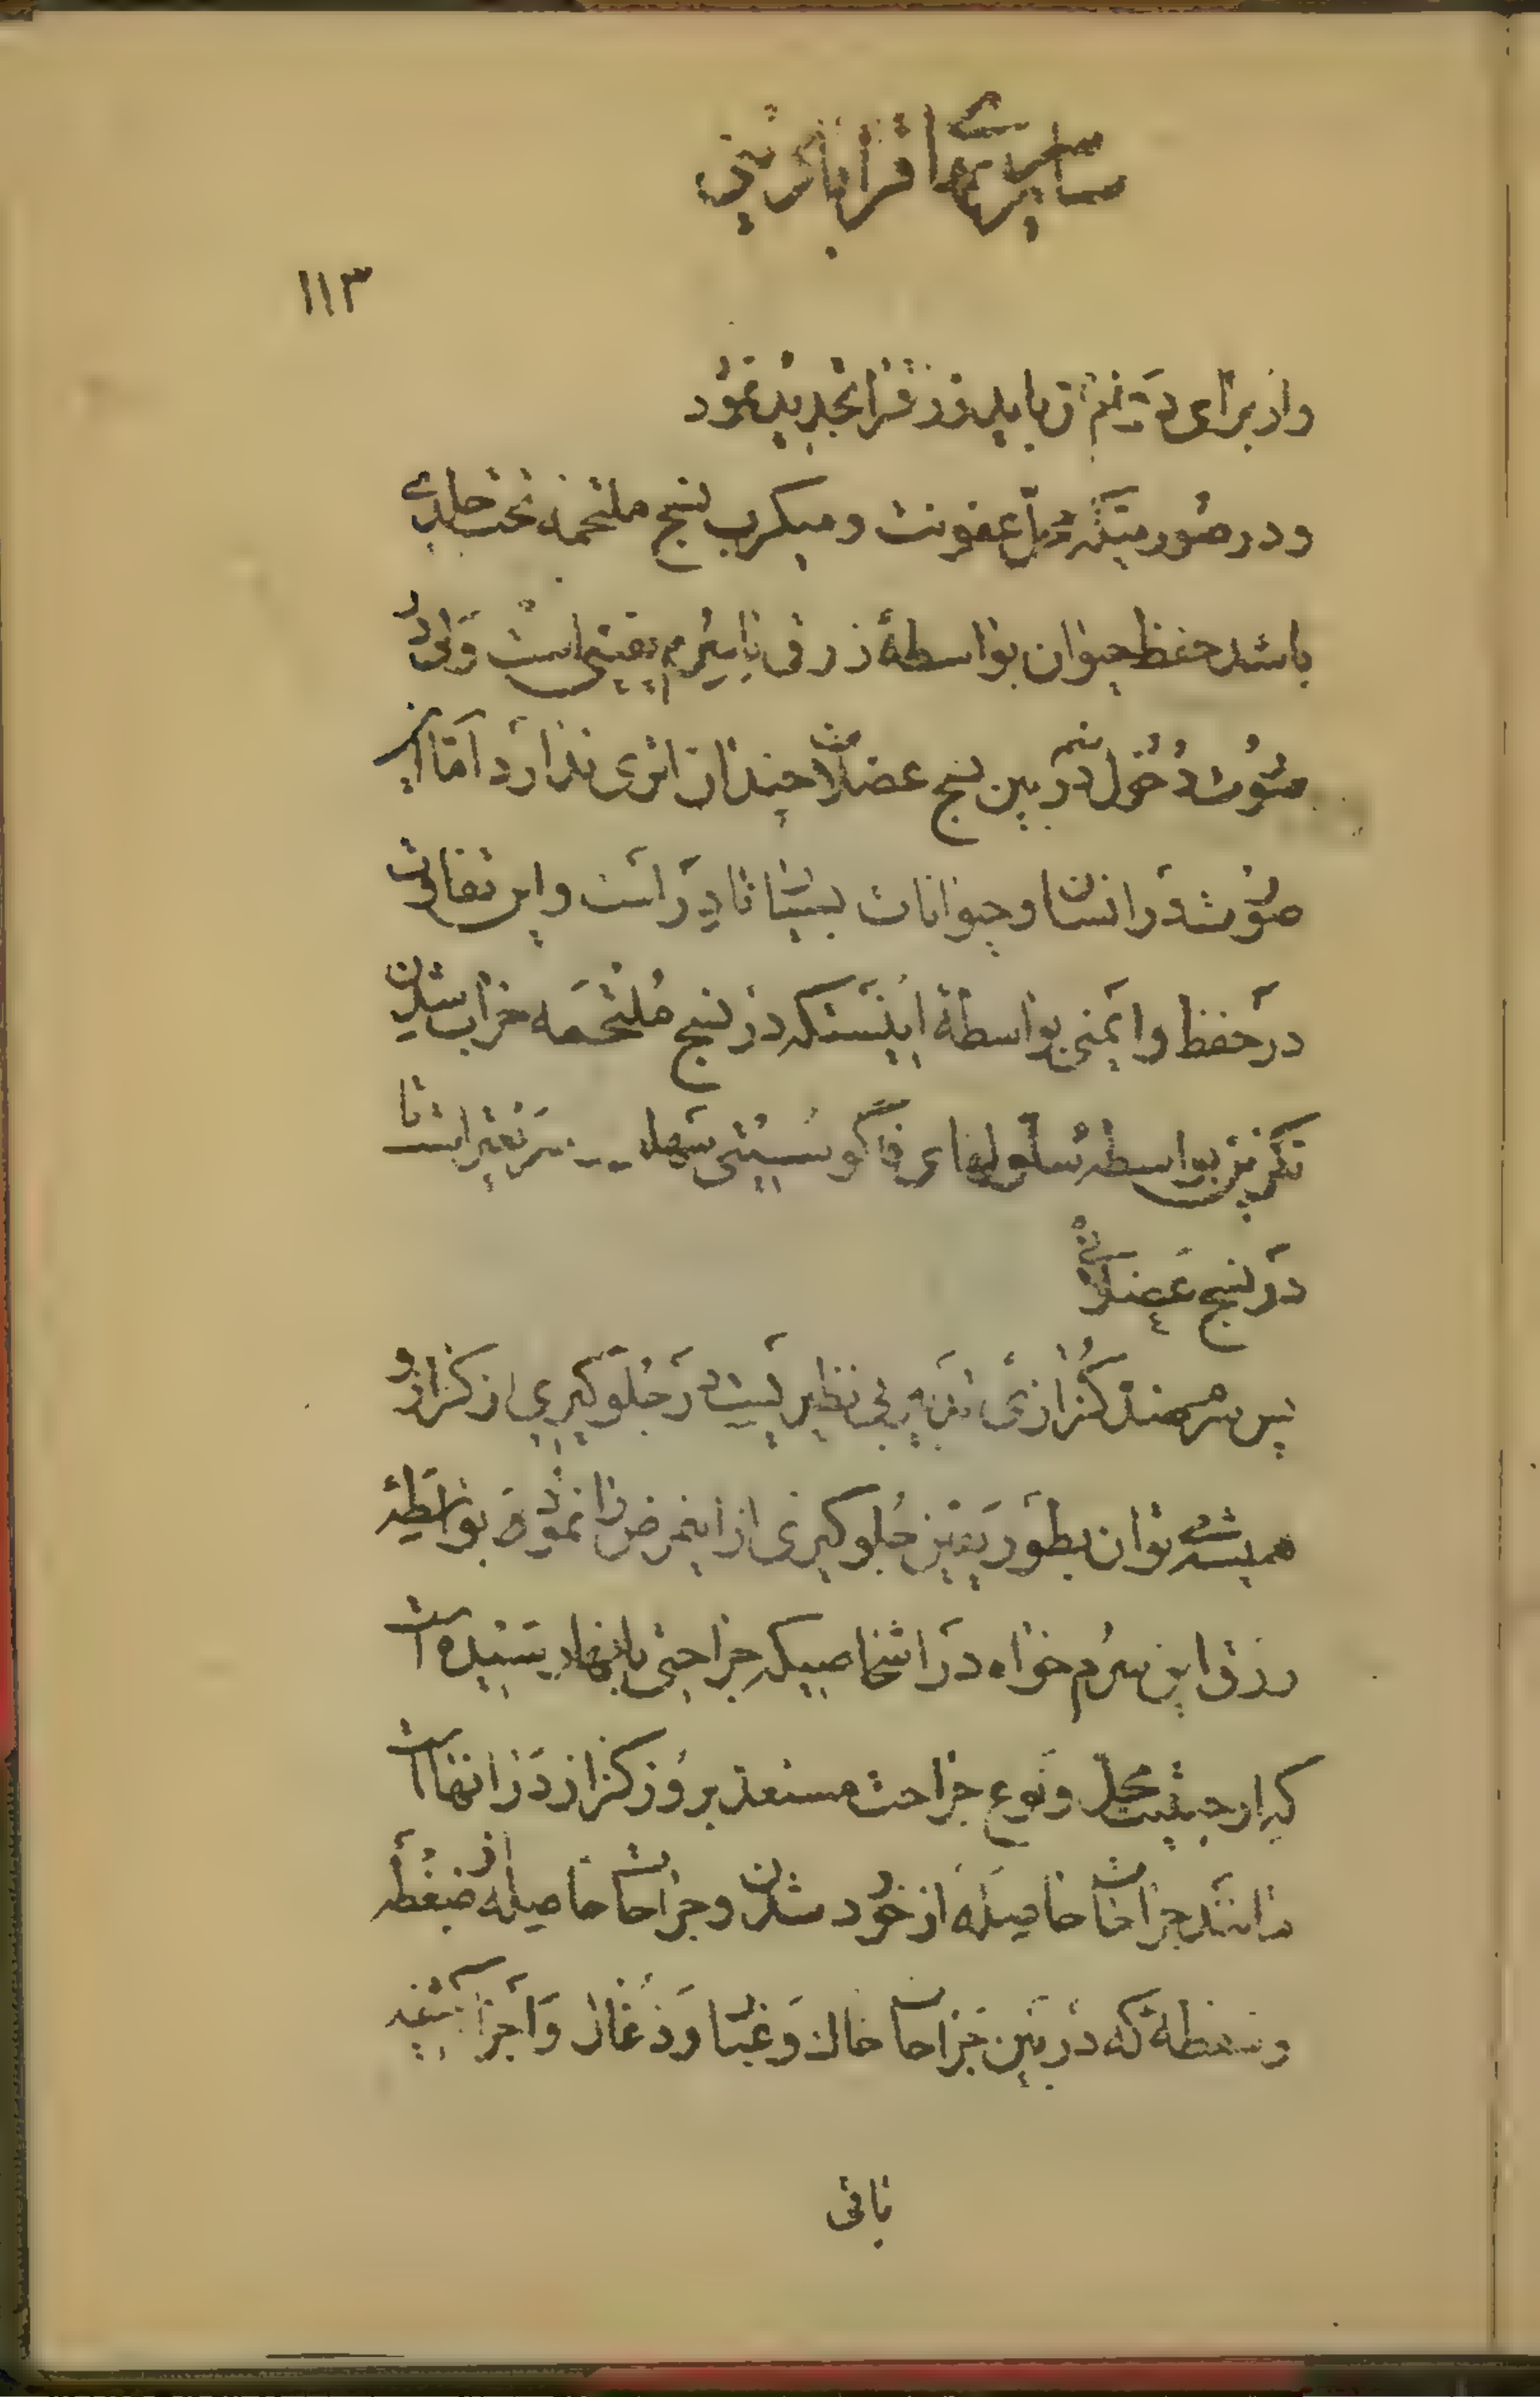 سایر سرمهای اقرابادینی
۱۱۳
و از برای باید زرق را تجدید نمود
و در صورتیکه محل عفونت و میکرب نسج ملتحمه تحت جلدی
باشد حفظ حیوان بواسطهٔ زرق با سرم یقینی است ولی در
صورت دخول سم در بین نسج عضلات چندان اثری ندارد اما این
صورت در انسان و حیوانات بسیار نادر است و این تفاوت
در حفظ و ایمنی بواسطهٔ اینستکه در نسج ملتحمه خراب شدن
تکزین بواسطه سلولهای فاگوسیتی سهل تر است تا
در نسج عضلانی
پس سرم ضد کزازی بی نظیر نیست در جلوگیری از کزاز و
همیشه توان بطور یقین جلوگیری از اینمرض را نمود بواسطهٔ
زرق این سرم خواه در اشخاصیکه جراحتی بانها رسیده است
که از حیثیت محل و نوع جراحت مستعد بروز کزاز در انها است
مانند جراحات حاصله از خورد شدن و جراحات حاصله از ضغطه
و ضغطهٔ که در بین جراحات خاک و غبار و ذغال و اجزا
باقی